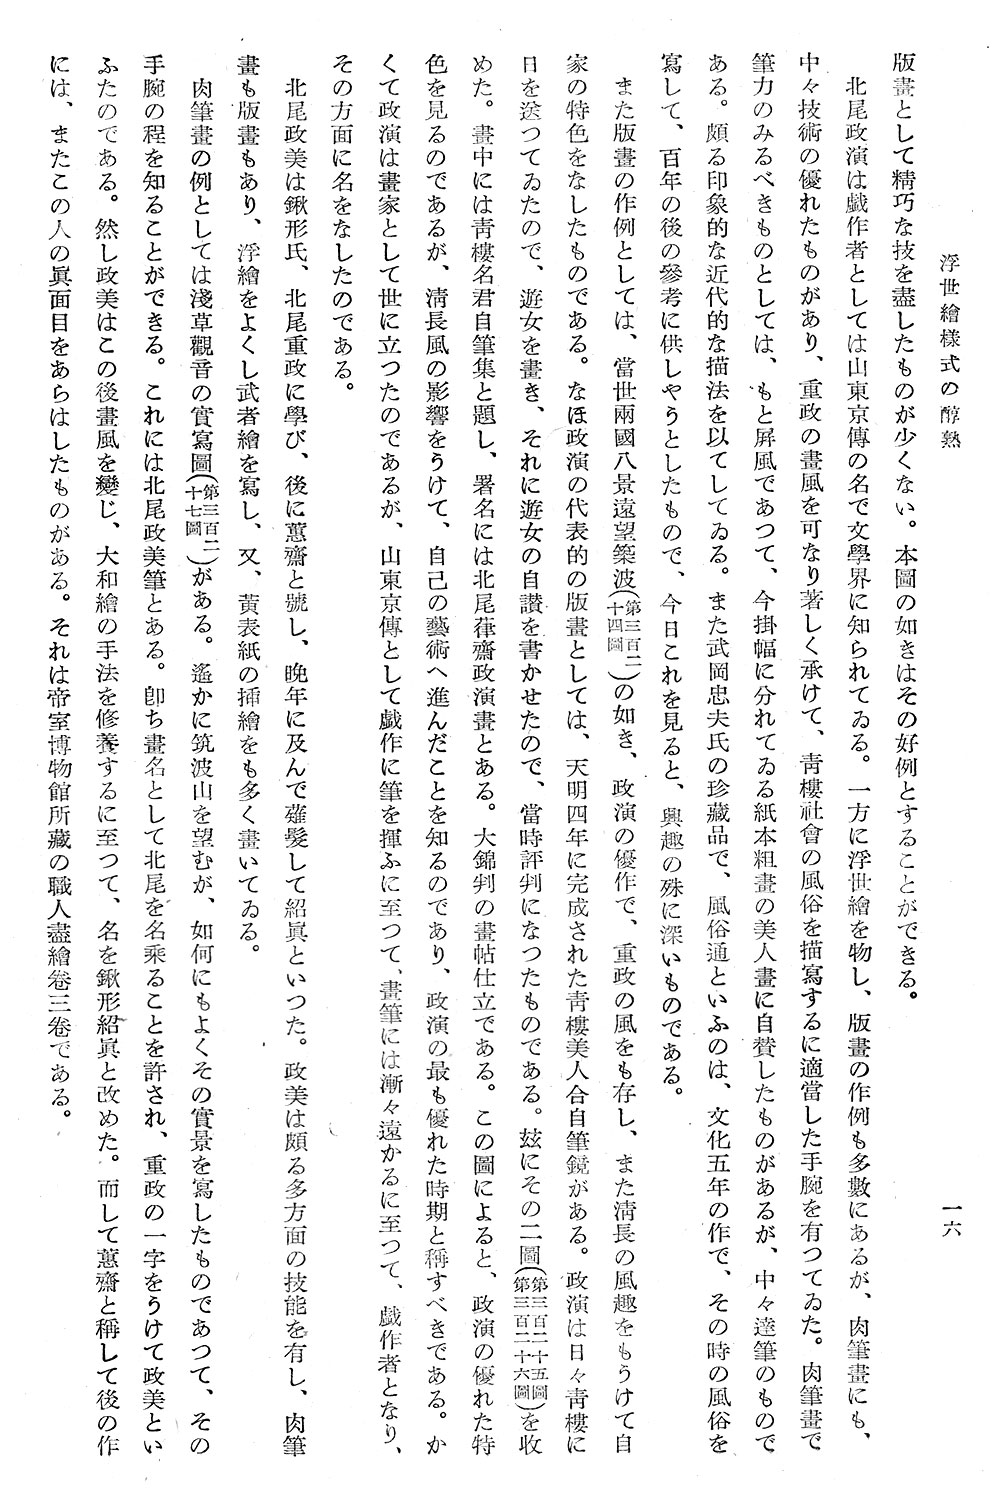 浮世繪樣式の醇熟
一六
版畫として精巧な技を盡したものが少くない。本圖の如きはその好例とすることができる。
北尾政演は戲作者としては山東京傳の名で文學界に知られてゐる。一方に浮世繪を物し、版畫の作例も多數にあるが、肉筆畫にも、
中々技術の優れたものがあり、重政の畫風を可なり著しく承けて、靑樓社會の風俗を描寫するに適當した手腕を有つてゐた。肉筆畫で
筆力のみるべきものとしては、もと屛風であつて、今掛幅に分れてゐる紙本粗畫の美人畫に自賛したものがあるが、中々達筆のもので
ある。頗る印象的な近代的な描法を以てしてゐる。また武岡忠夫氏の珍藏品で、風俗通といふのは、文化五年の作で、その時の風俗を
寫して、百年の後の參考に供しやうとしたもので、今日これを見ると、興趣の殊に深いものである。
また版畫の作例としては、當世兩國八景遠望築波(第三百二十四圖)の如き、政演の優作で、重政の風をも存し、また淸長の風趣をもうけて自
家の特色をなしたものである。なほ政演の代表的の版畫としては、天明四年に完成された靑樓美人合自筆鏡がある。政演は日々靑樓に
日を送つてゐたので、遊女を畫き、それに遊女の自讃を書かせたので、當時評判になつたものである。玆にその二圖(第三百二十五圖第三百二十六圖)を收
めた。畫中には靑樓名君自筆集と題し、署名には北尾葎齋政演畫とある。大錦判の畫帖仕立である。この圖によると、政演の優れた特
色を見るのであるが、淸長風の影響をうけて、自己の藝術へ進んだことを知るのであり、政演の最も優れた時期と稱すべきである。か
くて政演は畫家として世に立つたのであるが、山東京傳として戲作に筆を揮ふに至つて、畫筆には漸々遠かるに至つて、戲作者となり、
その方面に名をなしたのである。
北尾政美は鍬形氏、北尾重政に學び、後に蕙齋と號し、晚年に及んで薙髮して紹眞といつた。政美は頗る多方面の技能を有し、肉筆
畫も版畫もあり、浮繪をよくし武者繪を寫し、又、黃表紙の揷繪をも多く畫いてゐる。
肉筆畫の例としては淺草觀音の實寫圖(第三百二十七圖)がある。遙かに筑波山を望むが、如何にもよくその實景を寫したものであつて、その
手腕の程を知ることができる。これには北尾政美筆とある。卽ち畫名として北尾を名乘ることを許され、重政の一字をうけて政美とい
ふたのである。然し政美はこの後畫風を變じ、大和繪の手法を修養するに至つて、名を鍬形紹眞と改めた。而して蕙齋と稱して後の作
には、またこの人の眞面目をあらはしたものがある。それは帝室博物館所藏の職人盡繪卷三卷である。